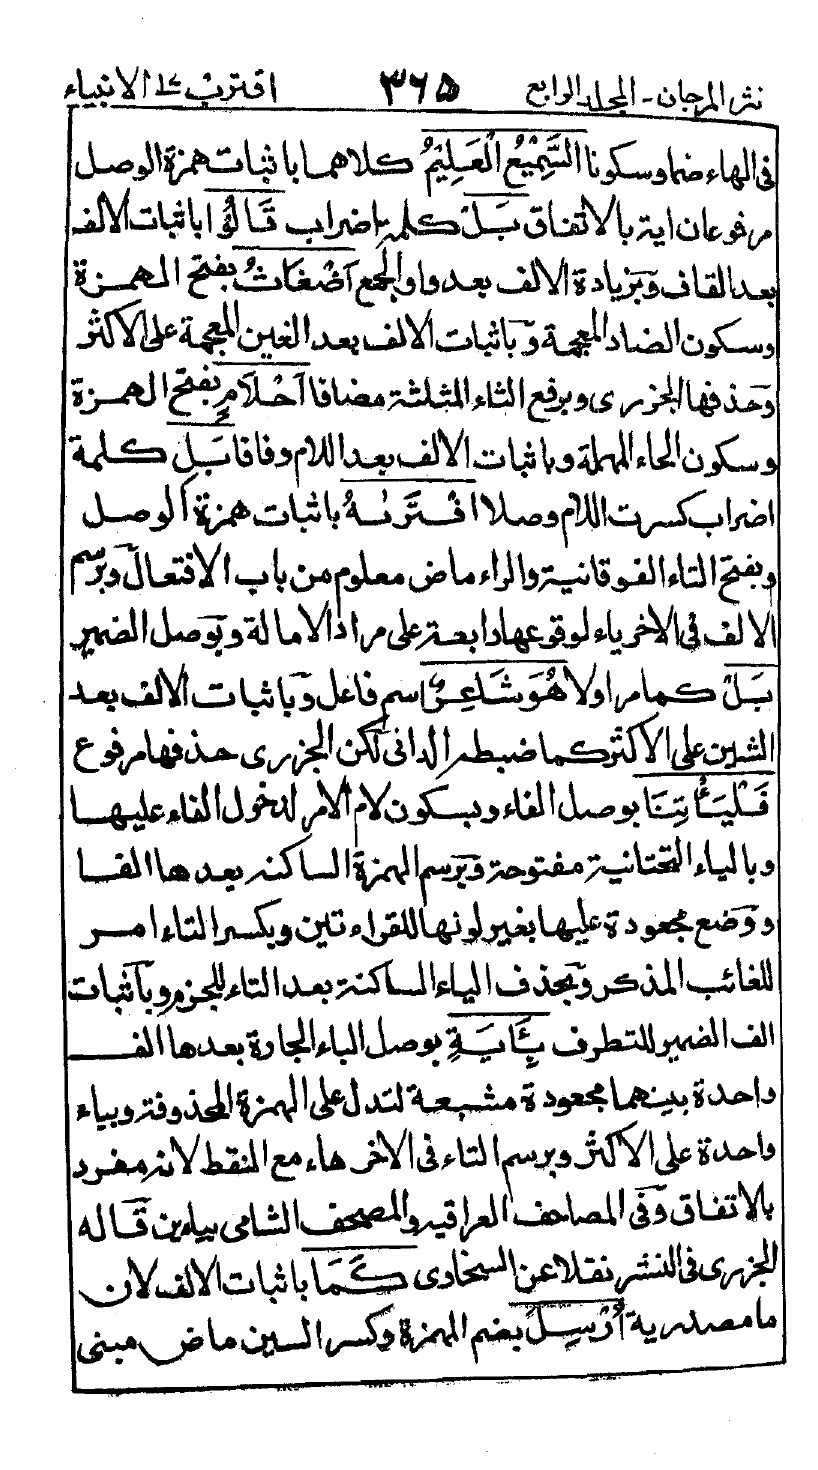 نثر المرجان - المجلد الرابع ٣٦٥ اقترب ١٧ الانبياء
فى الهاء ضما وسكونا السَّمِيْعُ الْعَلِيْمُ كلاهما باثبات همزة الوصل
مرفوعان اية بالاتفاق بَلْ كلمة اضراب قَالُوْا باثبات الالف
بعد القاف وبزيادة الالف بعد واو الجمع اَضْغَاثُ بفتح الهمزة
وسكون الضاد المعجمة وباثبات الالف بعد الغين المعجمة على الاكثر
وحذفها الجزرى وبرفع الثاء المثلثة مضافا اَحْلَامٍ بفتح الهمزة
وسكون الحاء المهملة وباثبات الالف بعد اللام وفاقا بَلِ كلمة
اضراب كسرت اللام وصلا افْتَرٰىهُ باثبات همزة الوصل
وبفتح التاء الفوقانية والراء ماض معلوم من باب الافتعال وبرسم
الالف فى الاخر ياء لوقوعها رابعة على مراد الامالة وبوصل الضمير
بَلْ كما مر اولا هُوَ شَاعِرٌ اسم فاعل وباثبات الالف بعد
الشين على الاكثر كما ضبطه الدانى لكن الجزرى حذفها مرفوع
فَلْيَأْتِنَا بوصل الفاء وبسكون لام الامر لدخول الفاء عليها
وبالياء التحتانية مفتوحة وبرسم الهمزة الساكنه بعدها الفا
ووضع مجعودة عليها بغير لونها للقراءتين وبكسر التاء امر
للغائب المذكر وبحذف الياء الساكنة بعد التاء للجزم وباثبات
الف الضمير للتطرف بِـَٔايَةٍ بوصل الباء الجارة بعدها الف
واحدة بينهما مجعودة مشبعة لتدل على الهمزة المحذوفة وبياء
واحدة على الاكثر وبرسم التاء فى الاخر هاء مع النقط لانه مفرد
بالاتفاق وفى المصاحف العراقية والمصحف الشامى بياءين قاله
الجزرى فى النشر نقلا عن السخاوى كَمَا باثبات الالف لان
ما مصدرية اُرْسِلَ بضم الهمزة وكسر السين ماض مبنى